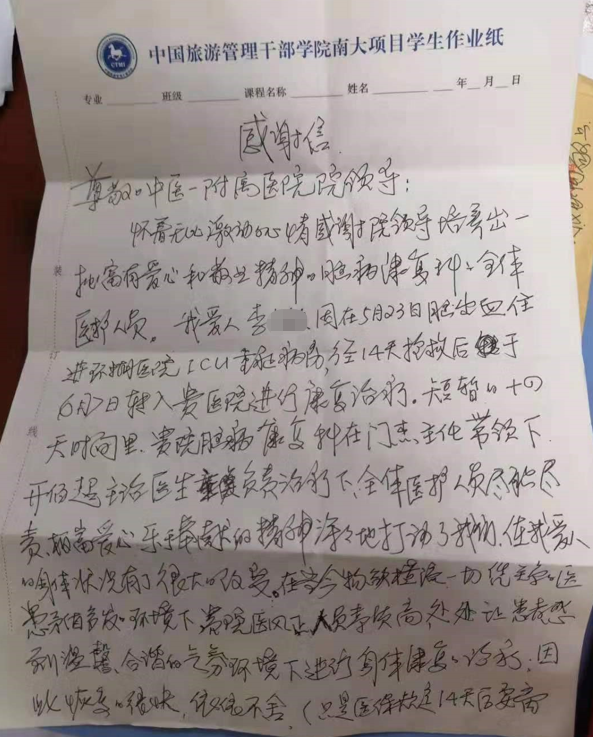 中国旅游管理干部学院南大项目学生作业纸
CTMI
专业 班级 课程名称 姓名 年 月 日
感谢信
尊敬的中医一附属医院院领导：
怀着无比激动的心情感谢院领导培养出一
批富有爱心和敬业精神的脑病康复科全体
医护人员。我爱人李 因在5月23日脑出血住
进环湖医院ICU重症病房，经14天抢救后于
6月7日转入贵医院进行康复治疗。短暂的十四
天时间里，贵院脑病康复科在门杰主任带领下
主治医生负责治疗下，全体医护人员尽职尽
责，拥富爱心，乐于奉献的精神深深地打动了我们，使我爱人
的身体状况有了很大的改变。在当今物欲横流一切先
患矛盾多发的环境下，贵院医风正，人员素质高，处处让患者感
到温馨、合谐的气氛环境下进行身体康复的治疗，因
此恢复的很快，依依不舍。（只是医保规定14天后要离
装
订
线